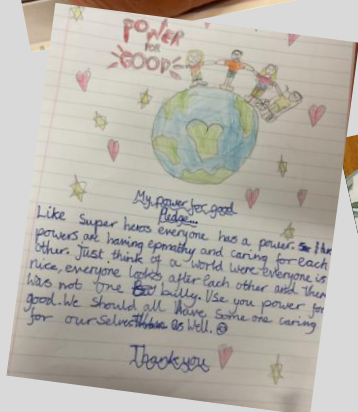 POWER
FOR
GOOD
My power for good
Pledge...
Like Super heros everyone has a power. So I hav
powers are having epmathy and caring for each
other. Just think of a world were everyone is
nice, everyone lookes after each other and ther
was not one bully. Use you power for
good. We should all have some one caring
for our selves as well.
Thank you